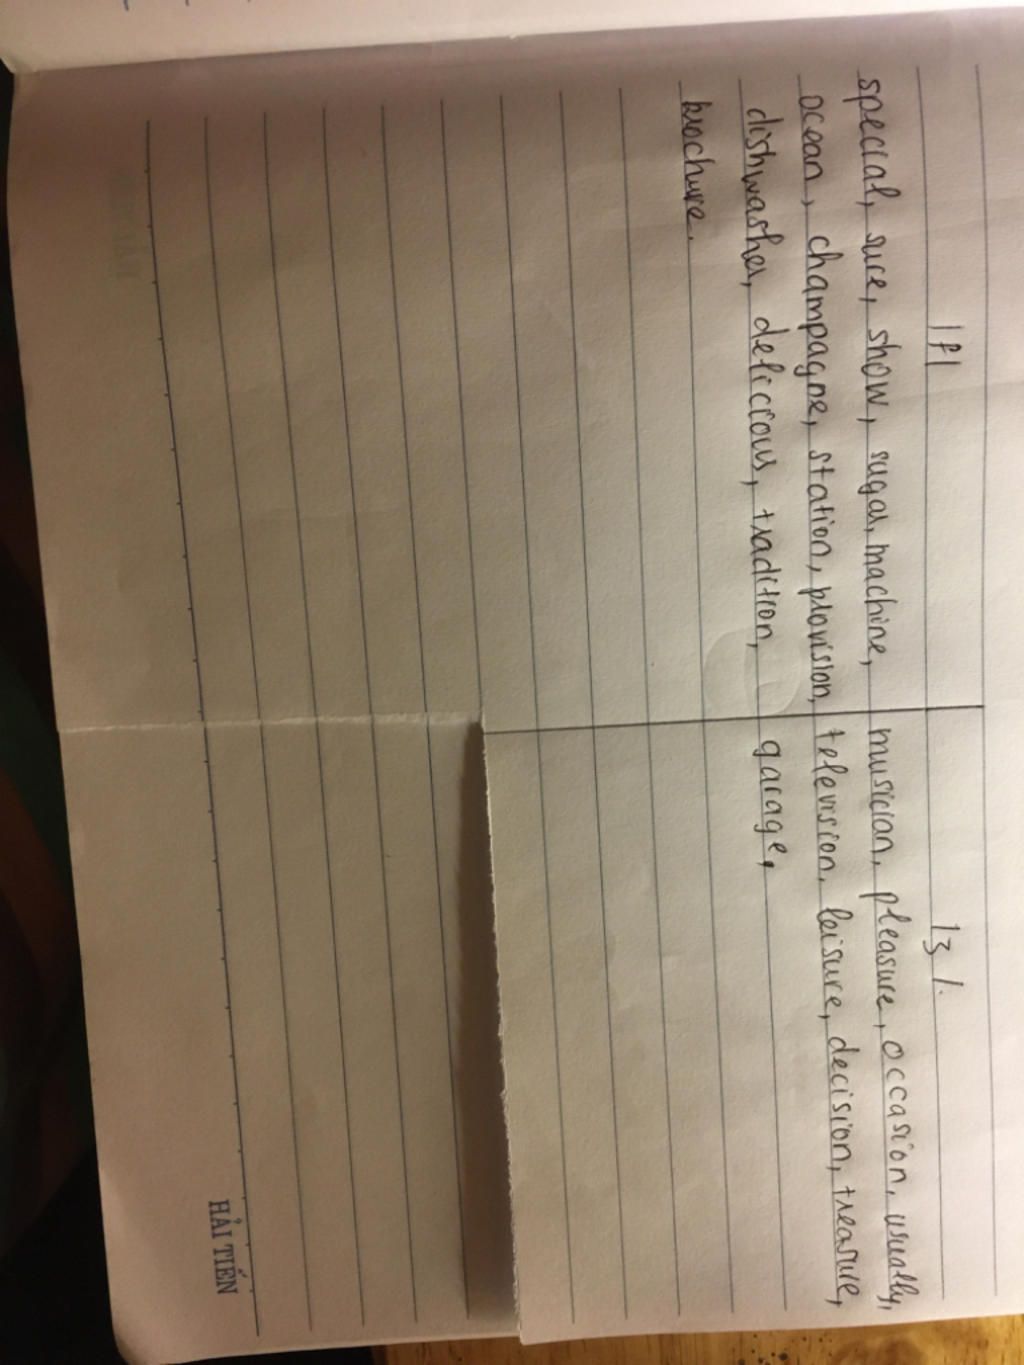 /ʃ/
/ʒ/.
special, sure, show, sugar, machine,
ocean, champagne, station, provision,
dishwasher, delicious, tradition,
brochure.
musician, pleasure, occasion, usually,
television, leisure, decision, treasure,
garage,
HẢI TIẾN